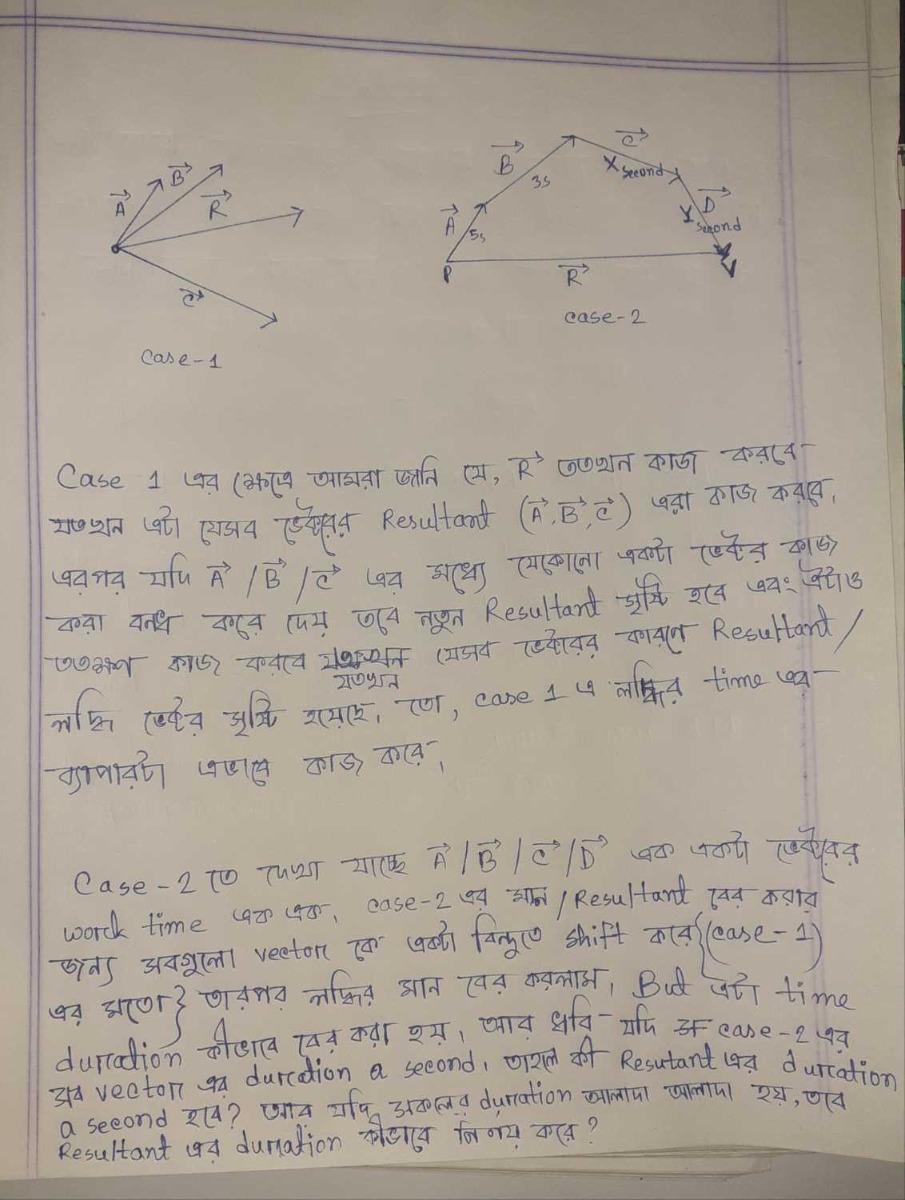 A⃗ B⃗ R⃗ C⃗
Case-1
P A⃗ 5s B⃗ 3s C⃗ X second D⃗ Y second R⃗
case-2
Case 1 এর ক্ষেত্রে আমরা জানি যে, R⃗ ততখন কাজ করবে
যতখন এটা যেসব ভেক্টরের Resultant (A⃗, B⃗, C⃗) এরা কাজ করবে,
এরপর যদি A⃗ / B⃗ / C⃗ এর মধ্যে যেকোনো একটা ভেক্টর কাজ
করা বন্ধ করে দেয় তবে নতুন Resultant সৃষ্টি হবে এবং এটাও
ততক্ষণ কাজ করবে যতখন যেসব ভেক্টরের কারণে Resultant /
লব্ধি ভেক্টর সৃষ্টি হয়েছে, তো, case 1 এ লব্ধির time এর
ব্যাপারটা এভাবে কাজ করে,
Case-2 তে দেখা যাচ্ছে A⃗ / B⃗ / C⃗ / D⃗ এক একটা ভেক্টরের
work time এক এক, case-2 এর মান / Resultant বের করার
জন্য সবগুলো vector কে একটা বিন্দুতে shift করে {(case-1)
এর মতো} তারপর লব্ধির মান বের করলাম, But এটা time
duration কীভাবে বের করা হয়, আর ধরি যদি case-2 এর
সব vector এর duration a second, তাহলে কী Resutant এর duration
a second হবে? আর যদি সকলের duration আলাদা আলাদা হয়, তবে
Resultant এর duration কীভাবে নির্ণয় করে?